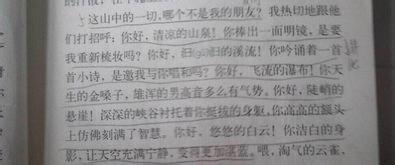 这山中的一切,哪个不是我的朋友?我热切地跟他
们打招呼:你好,清凉的山泉!你捧出一面明镜,是要
我重新梳妆吗?你好,汩汩的溪流!你吟诵着一首
首小诗,是邀我与你唱和吗?你好,飞流的瀑布!你天
生的金嗓子,雄浑的男高音多么有气势。你好,陡峭的
悬崖!深深的峡谷衬托着你挺拔的身躯,你高高的额头
上仿佛刻满了智慧。你好,悠悠的白云!你洁白的身
影,让天空充满宁静,变得更加湛蓝。喂,淘气的云雀,